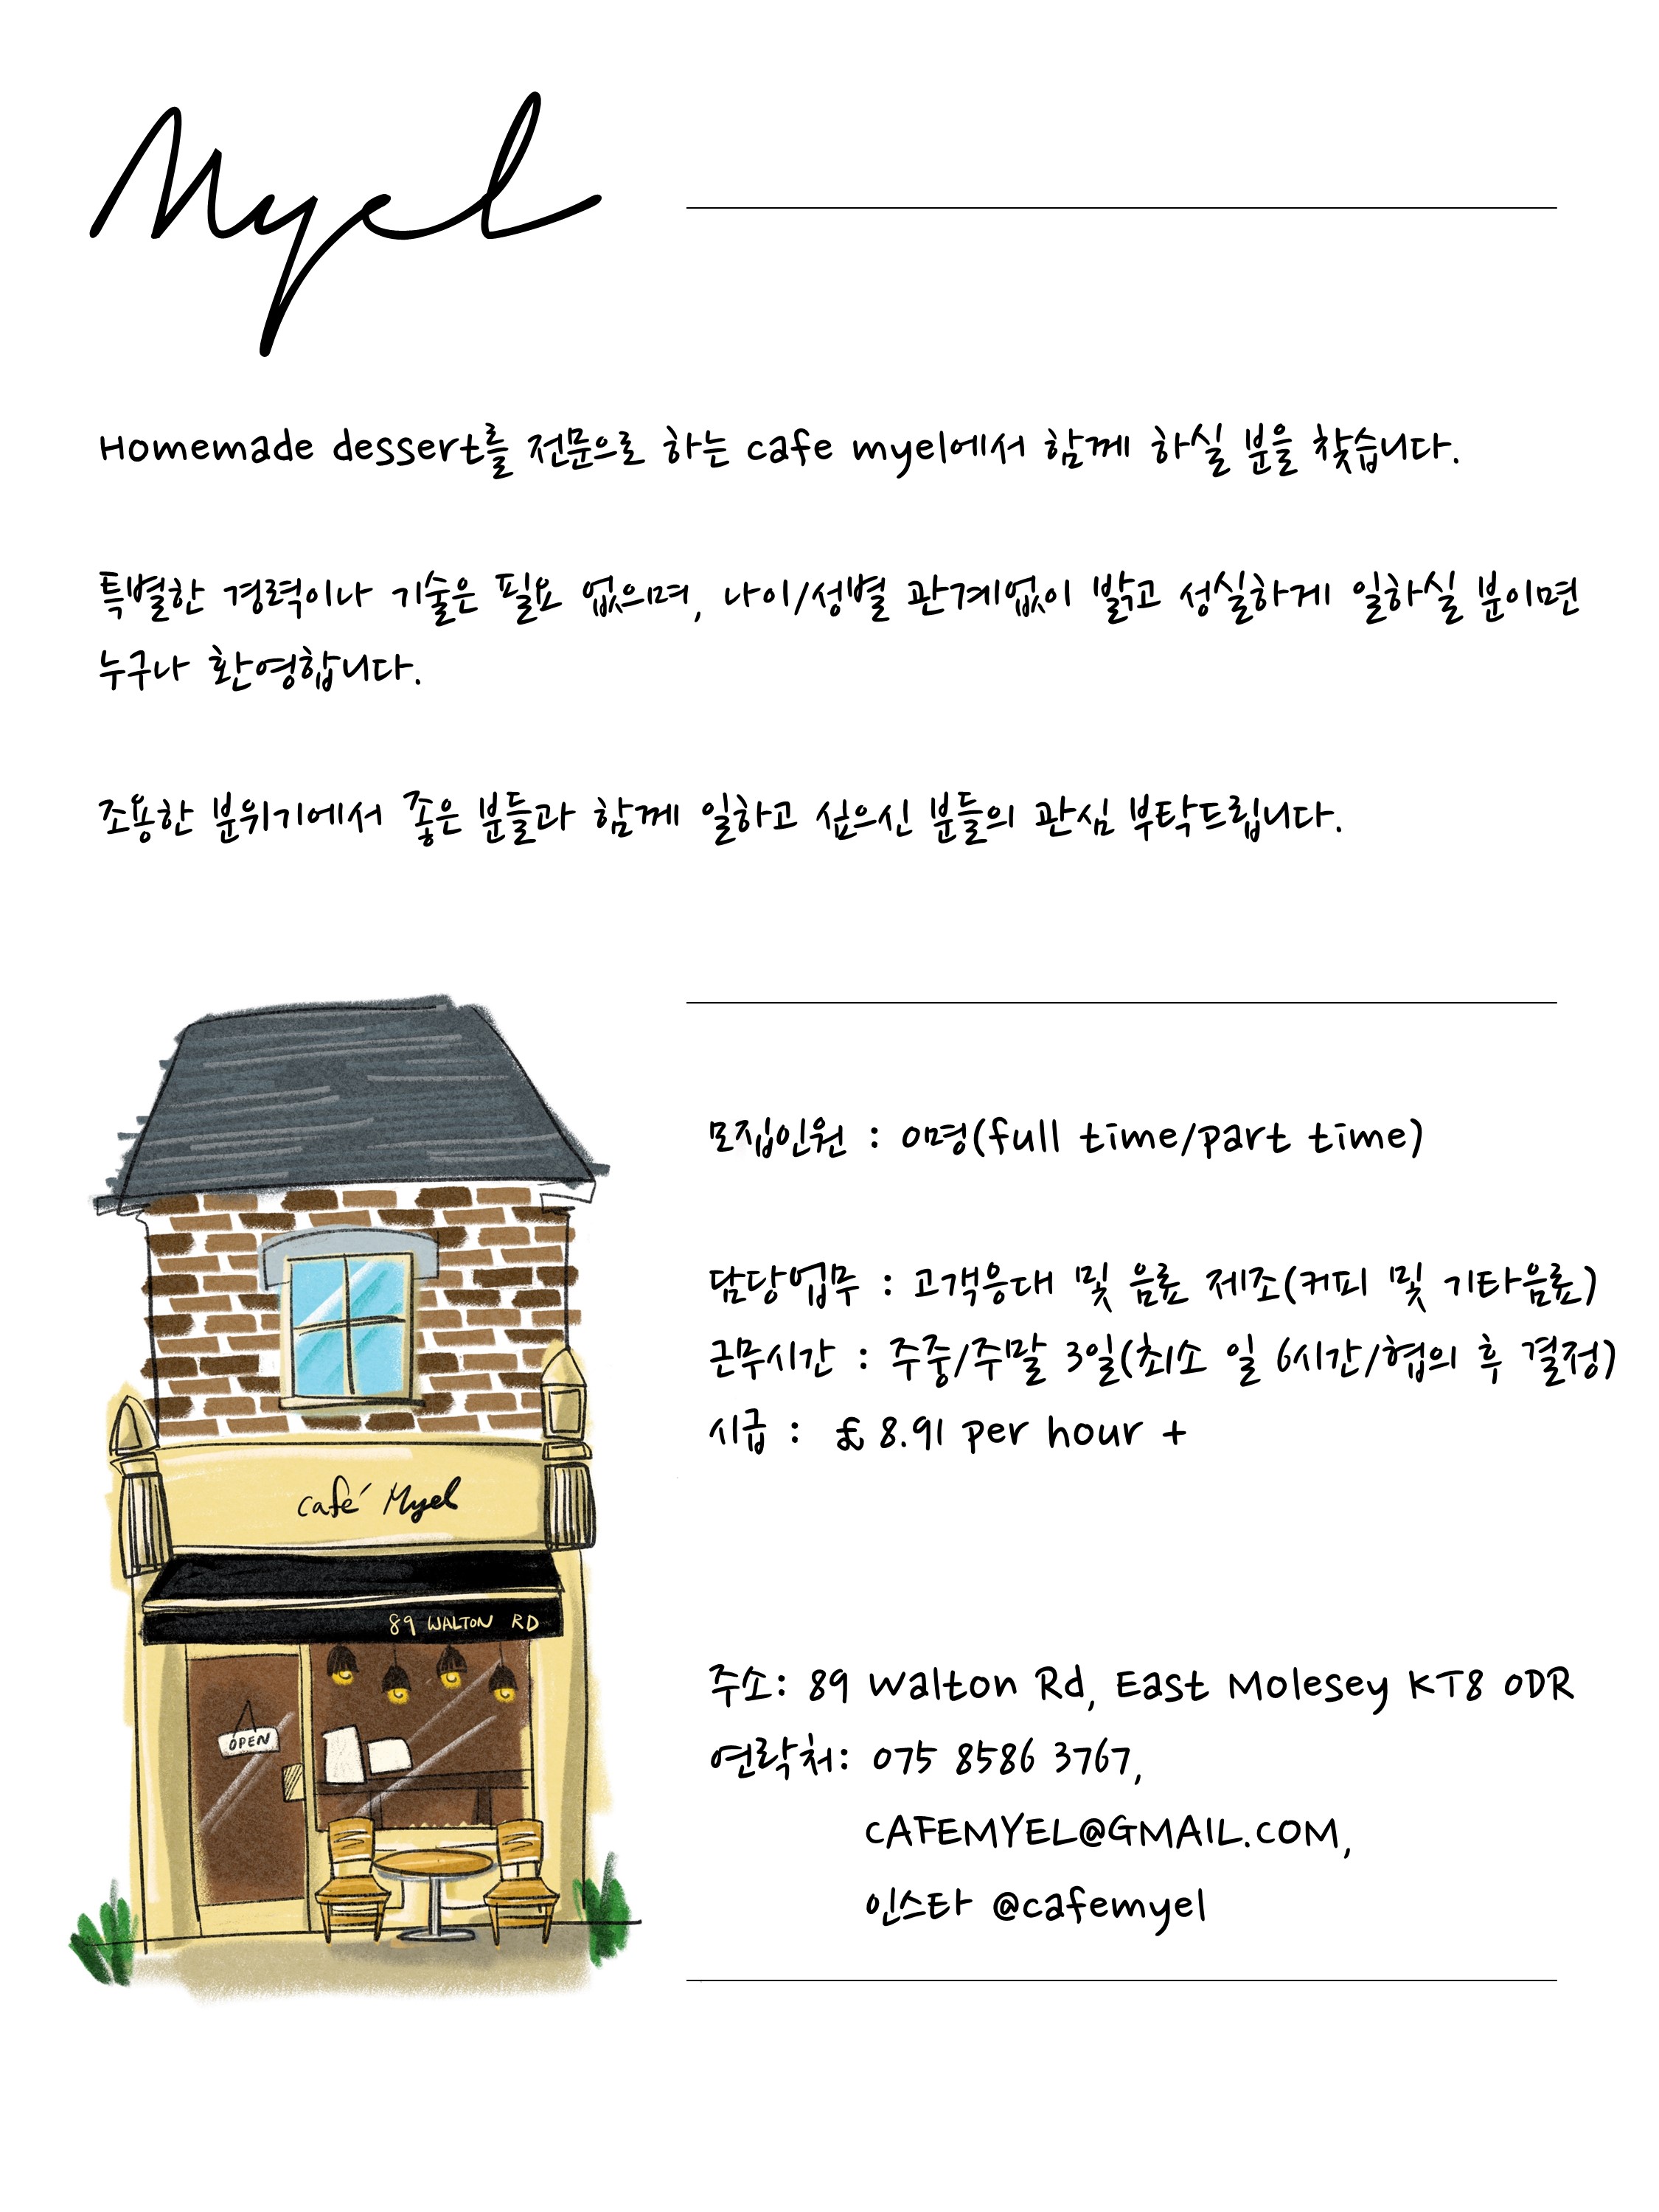 Myel
Homemade dessert를 전문으로 하는 cafe myel에서 함께 하실 분을 찾습니다.
특별한 경력이나 기술은 필요 없으며, 나이/성별 관계없이 밝고 성실하게 일하실 분이면
누구나 환영합니다.
조용한 분위기에서 좋은 분들과 함께 일하고 싶으신 분들의 관심 부탁드립니다.
모집인원 : 0명(full time/part time)
담당업무 : 고객응대 및 음료 제조(커피 및 기타음료)
근무시간 : 주중/주말 3일(최소 일 6시간/협의 후 결정)
시급 : £ 8.91 per hour +
café Myel
89 WALTON RD
OPEN
주소: 89 Walton Rd, East Molesey KT8 0DR
연락처: 075 8586 3767,
CAFEMYEL@GMAIL.COM,
인스타 @cafemyel